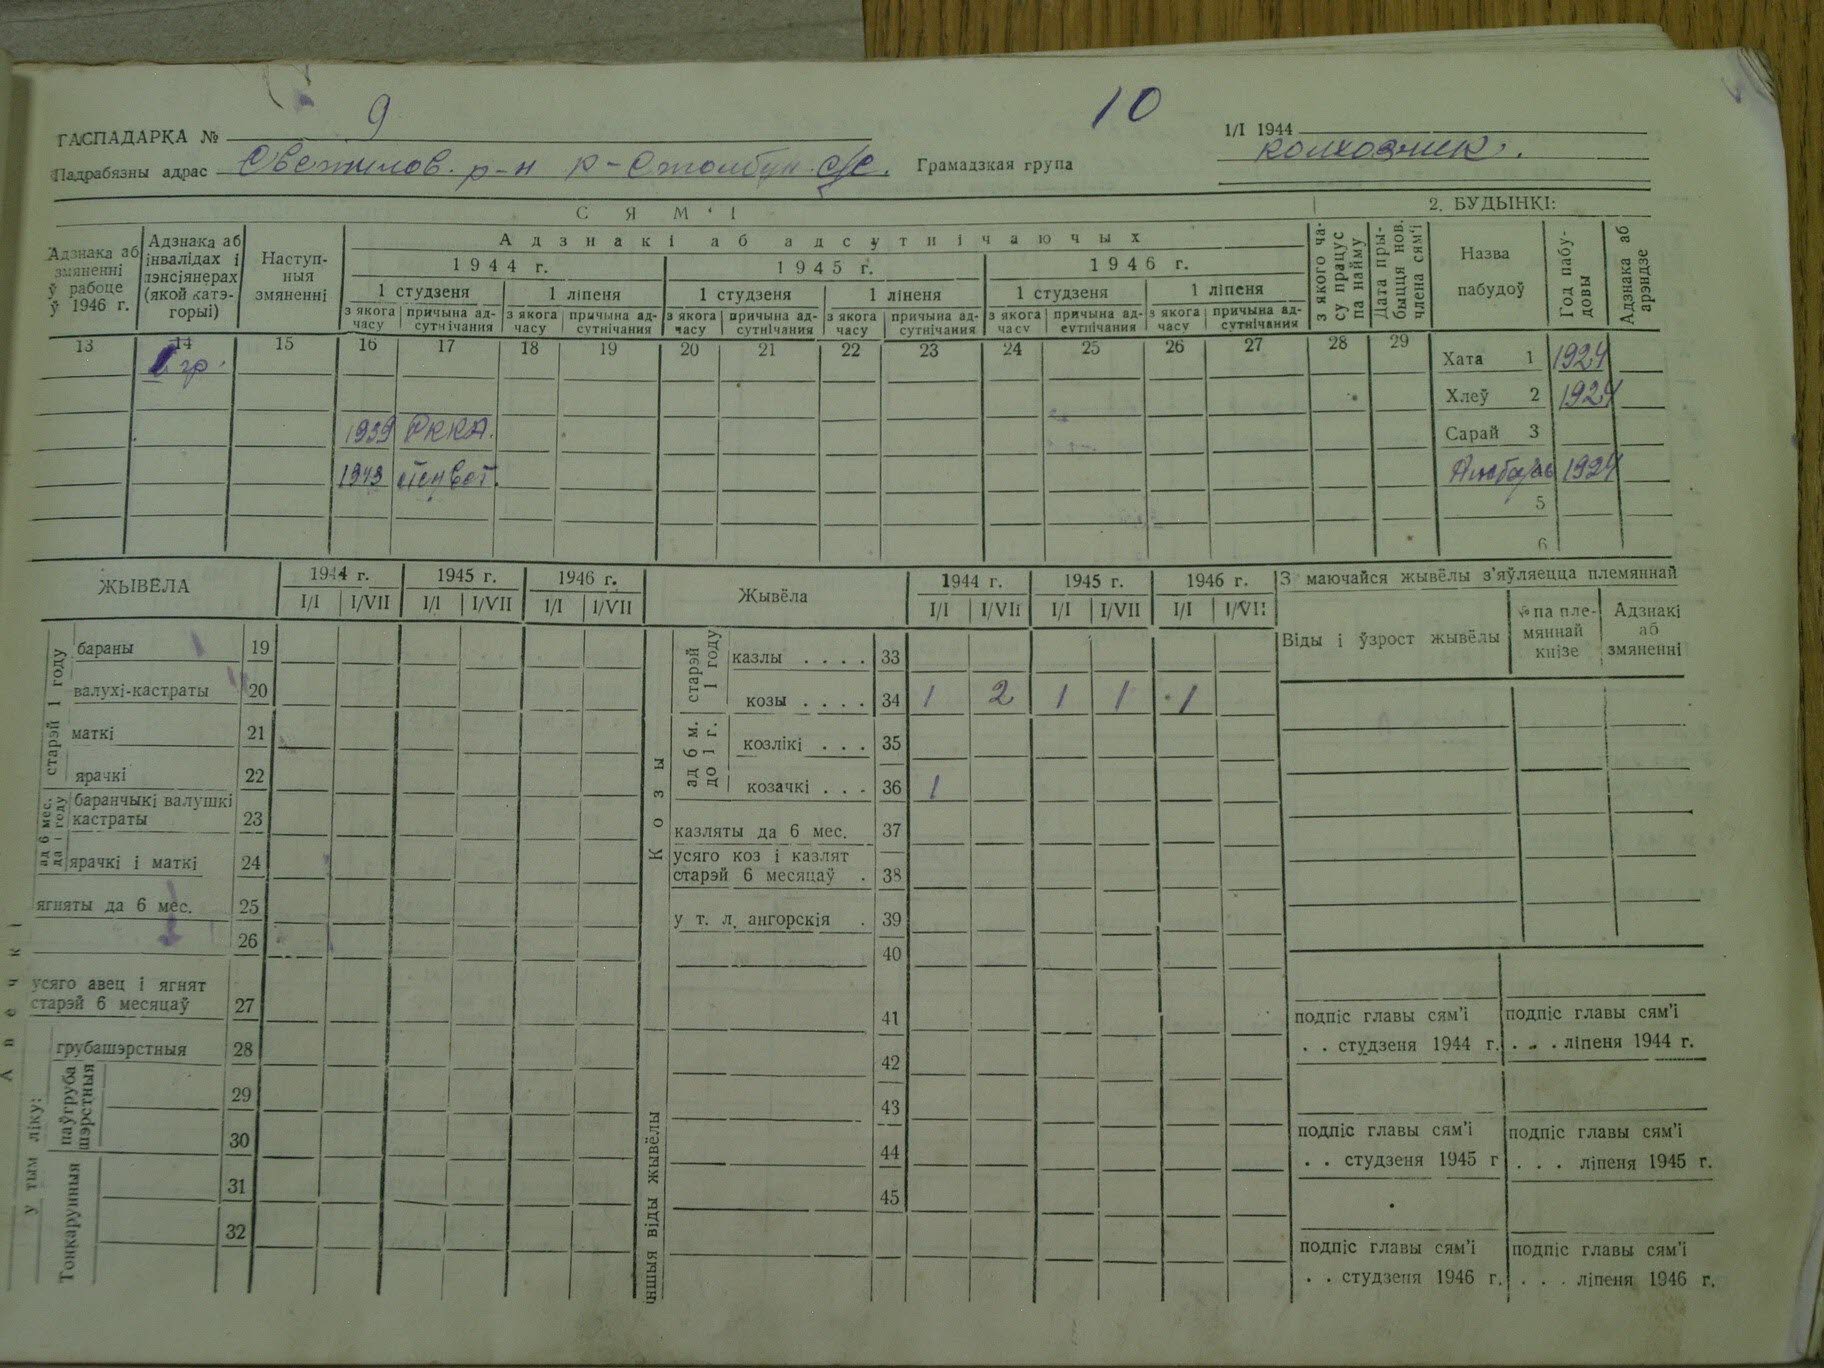 9
10
ГАСПАДАРКА №
1/I 1944
Падрабязны адрас Светилов. р-н К-Столбун. с/с.
Грамадзкая група колхозник.
С Я М ' І
2. БУДЫНКІ:
Адзнака аб змяненні ў рабоце ў 1946 г.
Адзнака аб інвалідах і пэнсіянерах (якой катэгорыі)
Наступныя змяненні
Адзнакі аб адсутнічаючых
1944 г. 1945 г. 1946 г.
1 студзеня 1 ліпеня 1 студзеня 1 ліпеня 1 студзеня 1 ліпеня
з якога часу причына адсутнічання з якога часу причына адсутнічания з якога часу причына адсутнічания з якога часу причына адсутнічания з якога часу причына адсутнічания з якога часу причына адсутнічания
з якога часу працус па найму
Дата прыбыцця нов. члена сям'і
Назва пабудоў
Год пабудовы
Адзнака аб арэндзе
13 14 15 16 17 18 19 20 21 22 23 24 25 26 27 28 29
гр.
Хата 1 1924
Хлеў 2 1924
1939 РККА.
Сарай 3
1943
1924
5
6
ЖЫВЁЛА
1944 г. 1945 г. 1946 г.
I/I I/VII I/I I/VII I/I I/VII
Жывёла
1944 г. 1945 г. 1946 г.
I/I I/VII I/I I/VII I/I I/VII
З маючайся жывёлы з'яўляецца племяннай
Віды і ўзрост жывёлы
№ па племяннай кнізе
Адзнакі аб змяненні
Авечкі
старэй 1 году
бараны 19
валухі-кастраты 20
маткі 21
ярачкі 22
ад 6 мес. да 1 году
баранчыкі валушкі кастраты 23
ярачкі і маткі 24
ягняты да 6 мес. 25
26
усяго авец і ягнят старэй 6 месяцаў 27
у тым ліку:
грубашэрстныя 28
паўгруба шэрстныя
29
30
Тонкарунныя
31
32
Козы
старэй 1 году
казлы . . . . 33
козы . . . . 34 1 2 1 1 1
ад 6 м. до 1 г.
козлікі . . . 35
козачкі . . . 36 1
казляты да 6 мес. 37
усяго коз і казлят старэй 6 месяцаў . 38
у т. л. ангорскія . 39
40
Іншыя віды жывёлы
41
42
43
44
45
подпіс главы сям'і
. . студзеня 1944 г.
подпіс главы сям'і
. . . ліпеня 1944 г.
подпіс главы сям'і
. . студзеня 1945 г
подпіс главы сям'і
. . . ліпеня 1945 г.
подпіс главы сям'і
. . студзеня 1946 г.
подпіс главы сям'і
. . . ліпеня 1946 г.